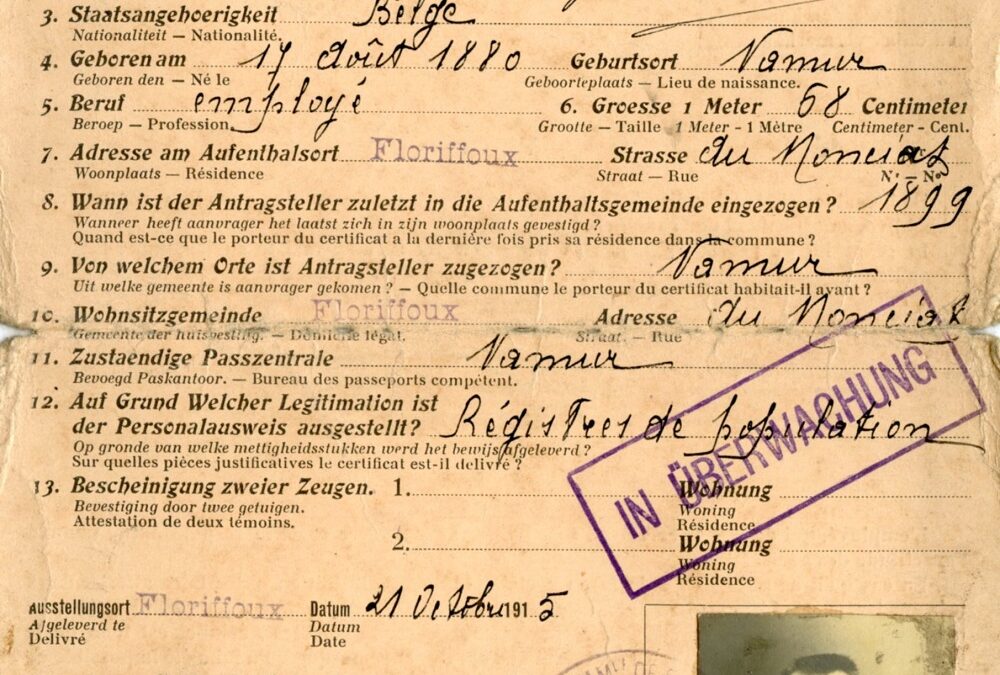 3. Staatsangehoerigkeit Belge
Nationaliteit — Nationalité.
4. Geboren am 17 Août 1880 Geburtsort Namur
Geboren den — Né le Geboorteplaats — Lieu de naissance.
5. Beruf employé 6. Groesse 1 Meter 68 Centimeter
Beroep — Profession. Grootte — Taille 1 Meter - 1 Mètre Centimeter - Cent.
7. Adresse am Aufenthalsort Floriffoux Strasse du Monciat
Woonplaats — Résidence Straat — Rue Nr — No
8. Wann ist der Antragsteller zuletzt in die Aufenthaltsgemeinde eingezogen? 1899
Wanneer heeft aanvrager het laatst zich in zijn woonplaats gevestigd?
Quand est-ce que le porteur du certificat a la dernière fois pris sa résidence dans la commune?
9. Von welchem Orte ist Antragsteller zugezogen? Namur
Uit welke gemeente is aanvrager gekomen? — Quelle commune le porteur du certificat habitait-il avant?
10. Wohnsitzgemeinde Floriffoux Adresse du Monciat
Gemeente der huisvesting. — Domicile légal. Straat. — Rue
11. Zustaendige Passzentrale Namur
Bevoegd Paskantoor. — Bureau des passeports compétent.
12. Auf Grund Welcher Legitimation ist
der Personalausweis ausgestellt? Régistres de population
Op gronde van welke mettigheidsstukken werd het bewijs afgeleverd?
Sur quelles pièces justificatives le certificat est-il délivré?
IN ÜBERWACHUNG
13. Bescheinigung zweier Zeugen. 1. Wohnung
Bevestiging door twee getuigen. Woning
Attestation de deux témoins. Résidence
2. Wohnung
Woning
Résidence
Ausstellungsort Floriffoux Datum 21 Octobre 1915
Afgeleverd te Datum
Delivré Date